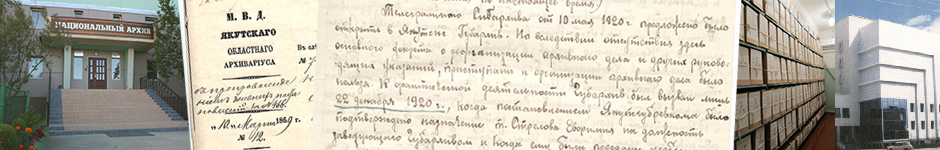 НАЦИОНАЛЬНЫЙ АРХИВ
М. В. Д.
ЯКУТСКАГО
ОБЛАСТНАГО
АРХИВАРІУСА
Въ
за № 166.
"10" Марта 1869 г.
№ 12.
Телеграммой Сибархива от 10 мая 1920 г. предложено было
открыть в Якутске Губархив. Но вследствии отсутствия здесь
основного декрета о реорганизации архивного дела и других руково-
дящих указаний, приступать к организации архивного дела было
нельзя. К практической деятельности Губархив был вызван лишь
22 декабря 1920 г., когда постановлением Якутгубревкома было
подтверждено назначение т. Стрелова Еворимия на должность
заведующего Губархивом и когда ему были